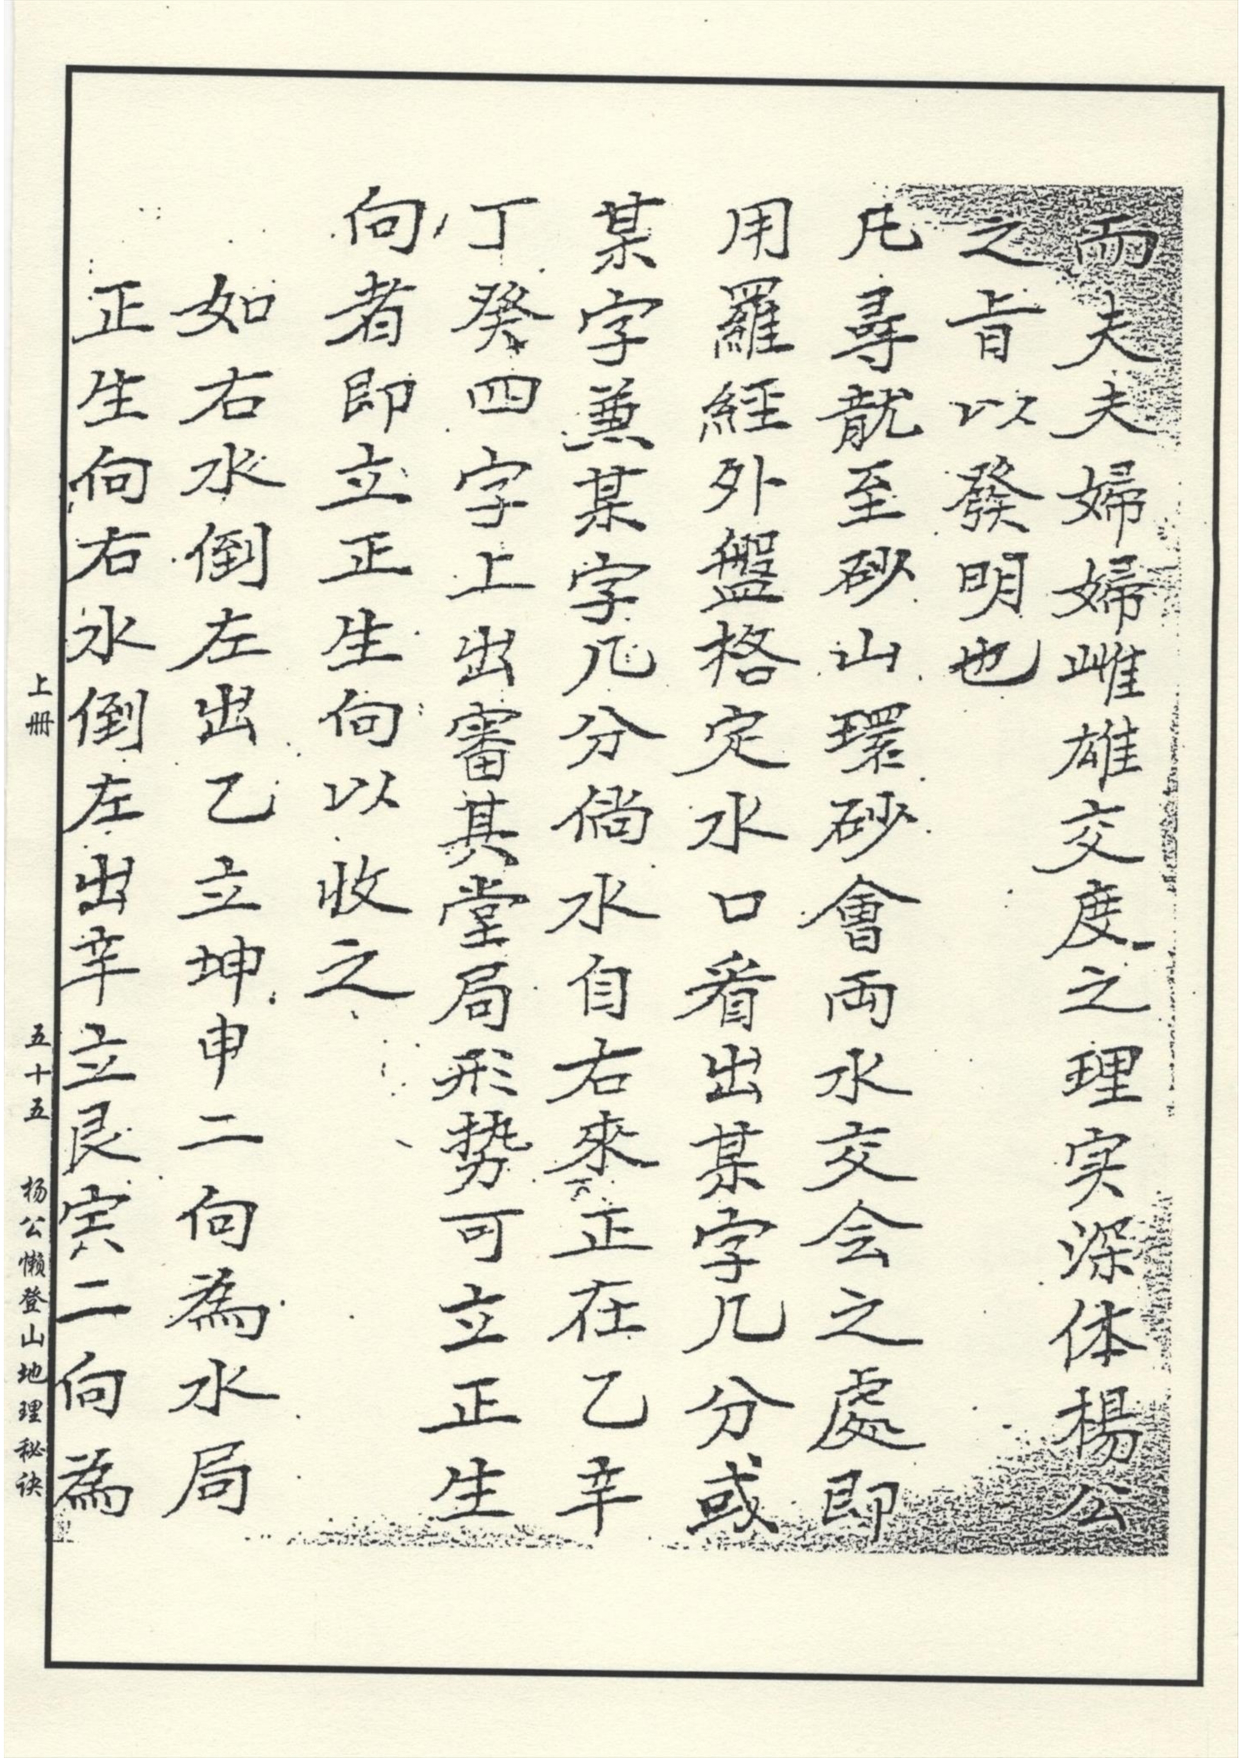 而夫夫婦婦雌雄交度之理实深体楊公
之旨以發明也
凡尋龍至砂山環砂會両水交会之處即
用羅經外盤格定水口看出某字几分或
某字兼某字几分倘水自右來正在乙辛
丁癸四字上出審其堂局形势可立正生
向者即立正生向以收之
如右水倒左出乙立坤申二向為水局
正生向右水倒左出辛立艮寅二向為
上册
五十五
杨公懒登山地理秘诀